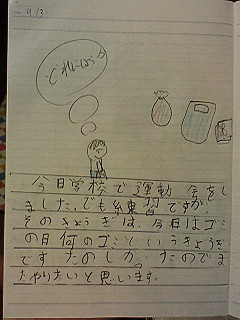 4/13
どれにしようか
今日学校で運動会をし
ました。でも練習ですが
そのきょうぎは、今日はゴミ
の日何のゴミというきょうぎ
です たのしかったのでま
たやりたいと思います。